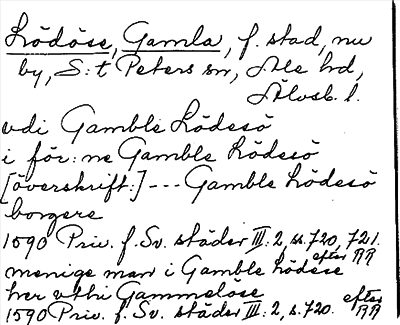 Lödöse, Gamla, f. stad, nu
by, S:t Peters sn, Ale hd,
Älvsb. l.
vdi Gamble Lödesö
i för:ne Gamble Lödesö
[överskrift:] --- Gamble Lödesö
borgere
1590 Priv. f. Sv. städer III:2, ss. 720, 721.
efter RR
menige man i Gamble Lödese
her vthi Gammelöse
1590 Priv. f. Sv. städer III:2, s. 720. efter
RR